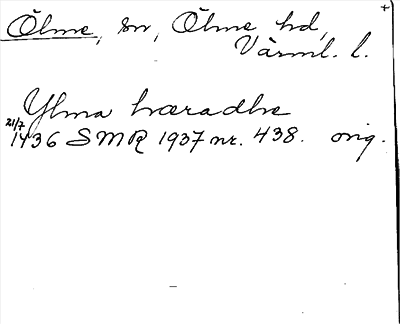 Ölme, sn, Ölme hd,
Värml. l.
Ylma hæradhe
21/7
1436 SMR 1937 nr. 438. orig.